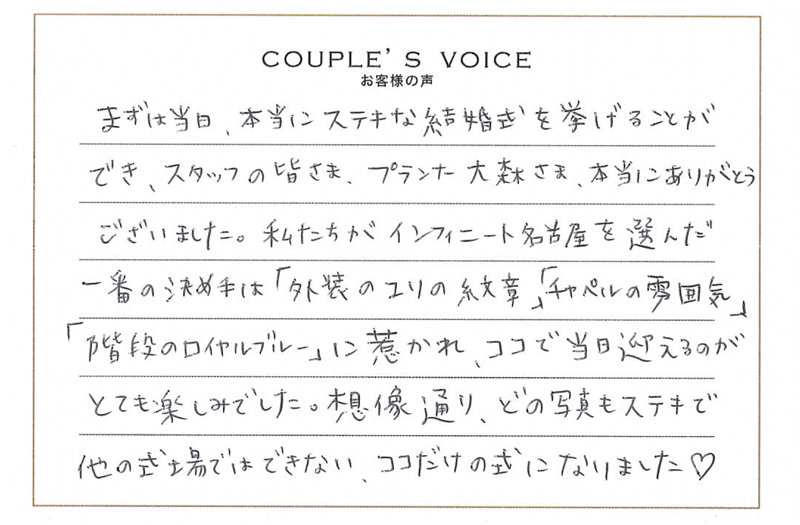 COUPLE'S VOICE
お客様の声
まずは当日、本当にステキな結婚式を挙げることが
でき、スタッフの皆さま、プランナー大森さま、本当にありがとう
ございました。私たちがインフィニート名古屋を選んだ
一番の決め手は「外装のユリの紋章」「チャペルの雰囲気」
「階段のロイヤルブルー」に惹かれ、ココで当日迎えるのが
とても楽しみでした。想像通り、どの写真もステキで
他の式場ではできない、ココだけの式になりました♡